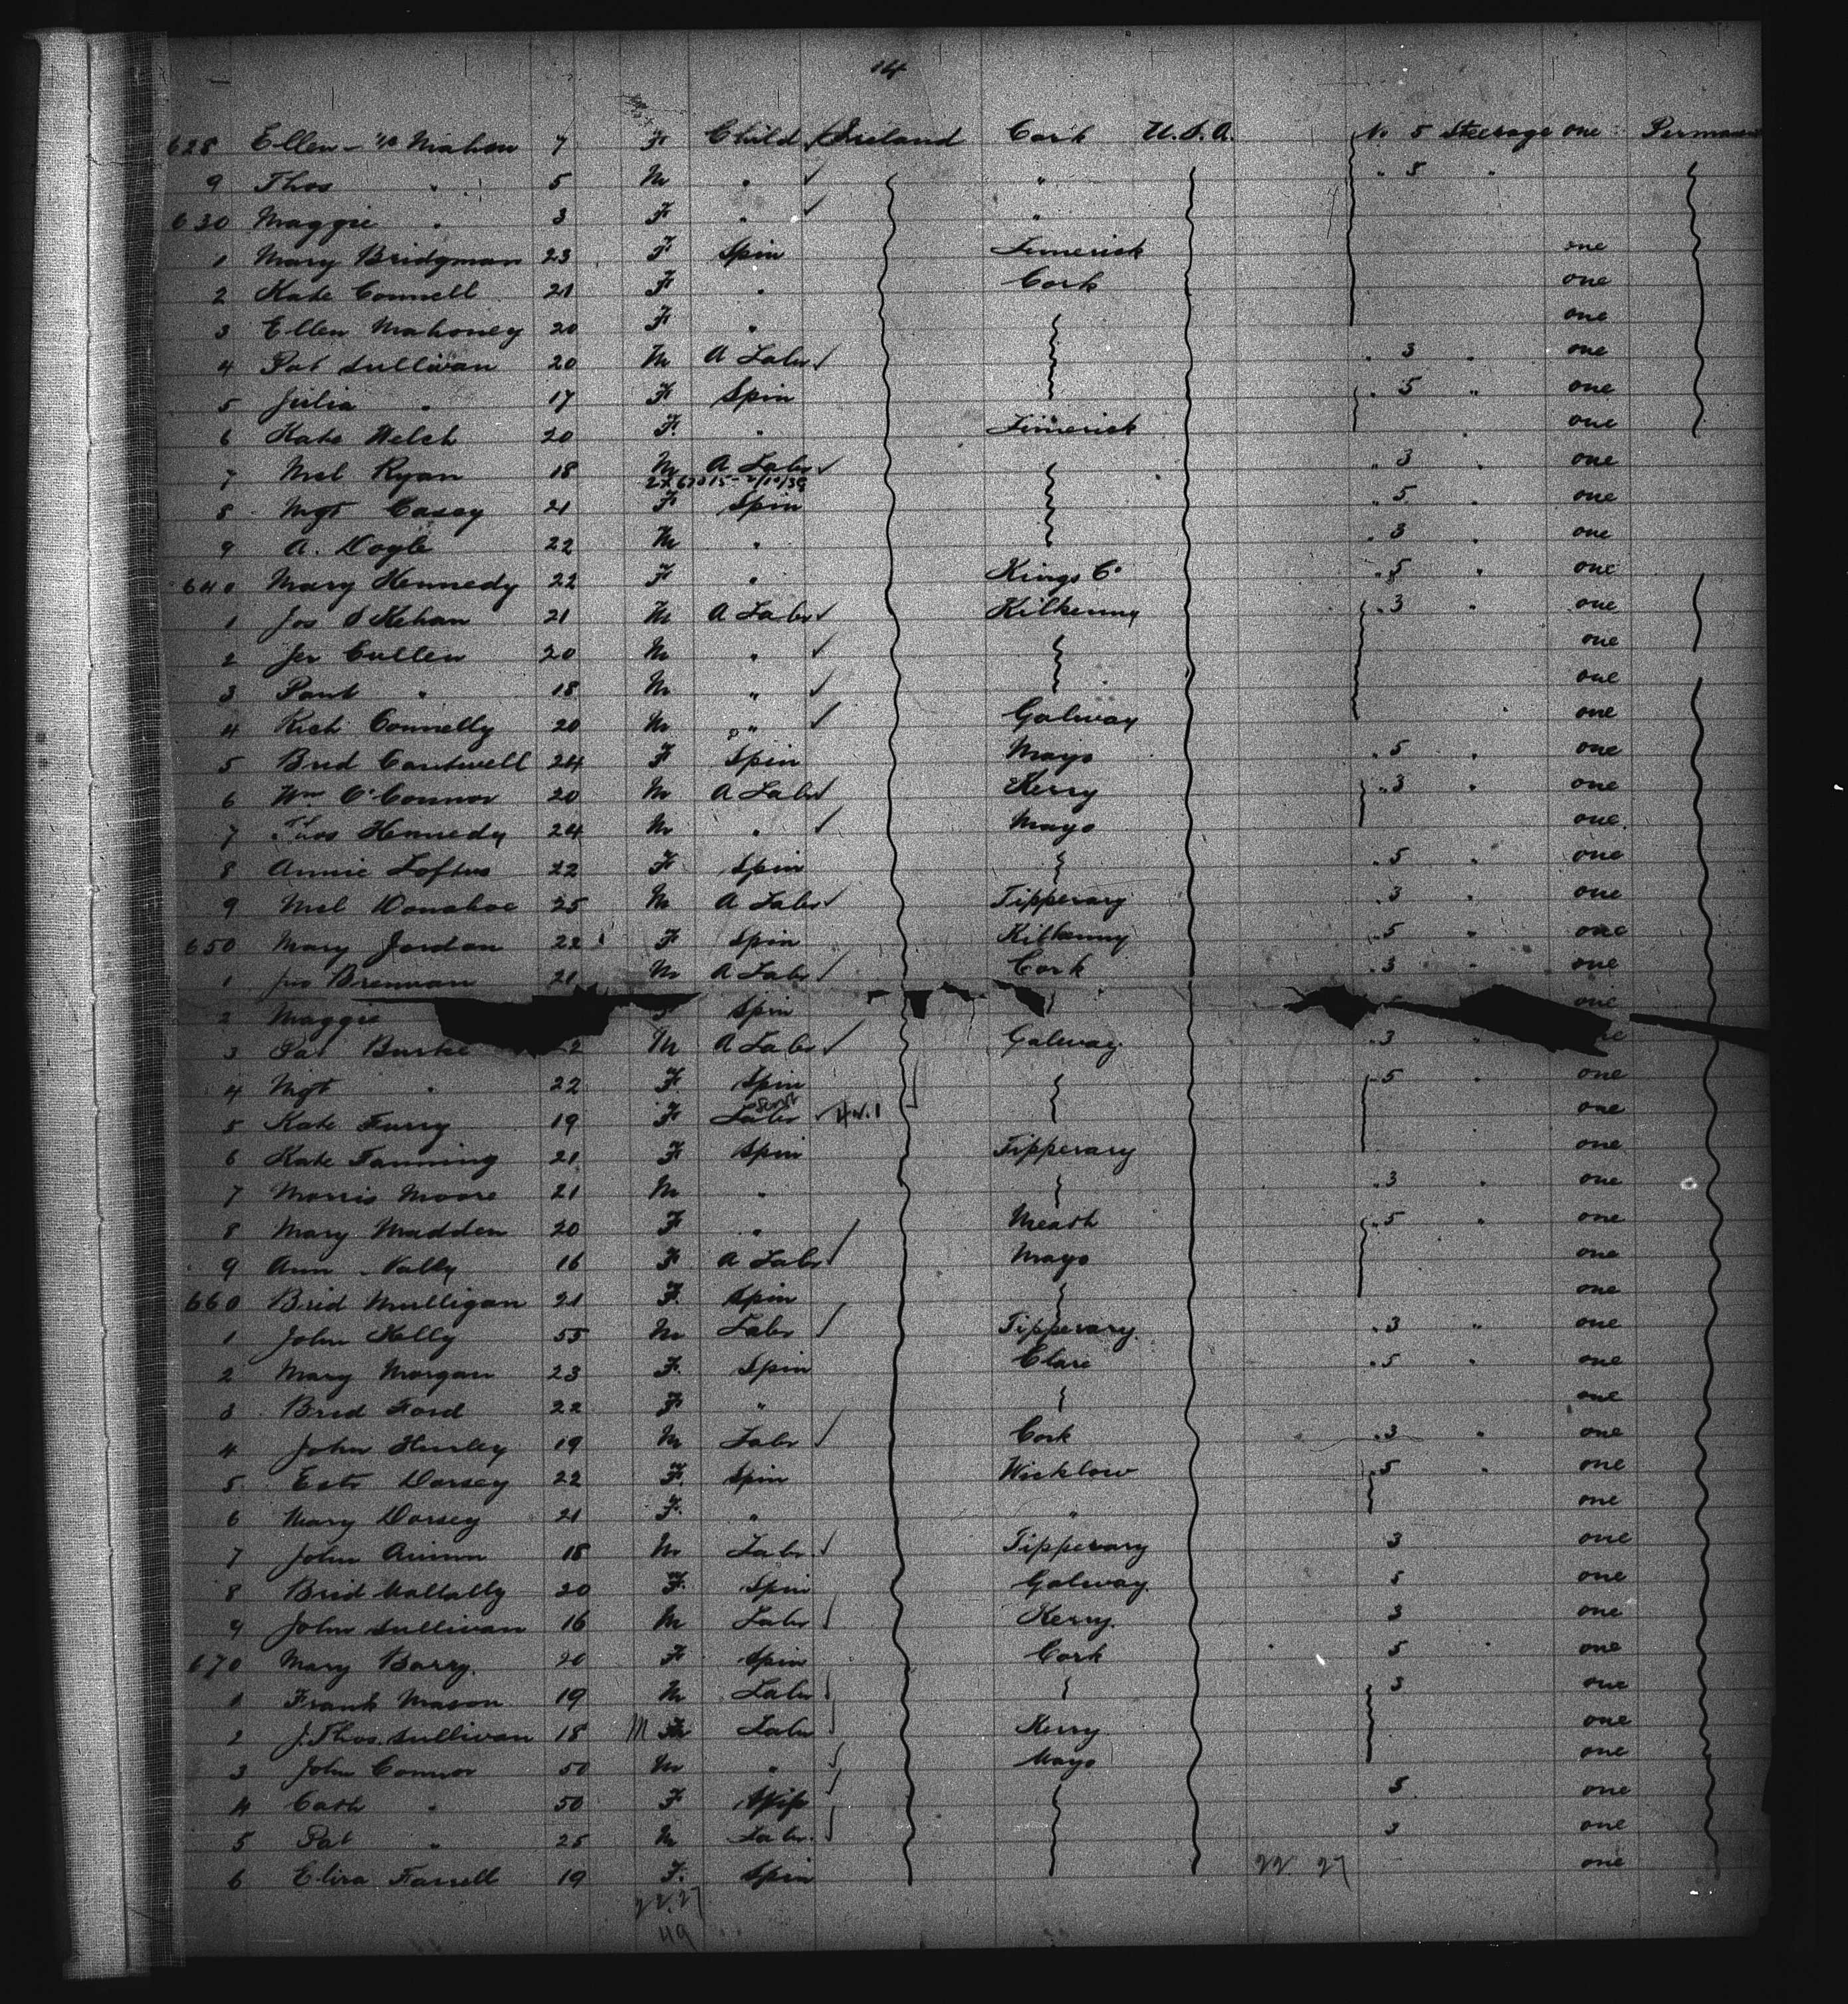 14
628 Ellen Mc Mahon 7 F Child Ireland Cork U.S.A. No 5 Steerage one
9 Thos " 5 M " " " 5 "
630 Maggie " 3 F " "
1 Mary Bridgman 23 F Spin Limerick one
2 Kate Connell 21 F " Cork one
3 Ellen Mahoney 20 F " one
4 Pat Sullivan 20 M A Labr " 3 " one
5 Julia " 17 F Spin " 5 " one
6 Kate Welch 20 F " Limerick one
7 Mcl Ryan 18 M A Labr " 3 " one
8 Mgt Casey 21 F Spin " 5 " one
9 A. Doyle 22 M " " 3 " one
640 Mary Kennedy 22 F " Kings Co " 5 " one
1 Jos 21 M A Labr Kilkenny " 3 " one
2 Jer Cullen 20 M " one
3 " 18 M " one
4 Rich Connelly 20 M " Galway one
5 Brid Cantwell 24 F Spin Mayo " 5 " one
6 Wm O'Connor 20 M A Labr Kerry " 3 " one
7 Thos Kennedy 24 M " Mayo one
8 Annie Loftus 22 F Spin " 5 " one
9 Mcl Donahoe 25 M A Labr Tipperary " 3 " one
650 Mary Jordan 22 F Spin Kilkenny " 5 " one
1 Jno Brennan 21 M A Labr Cork " 3 " one
2 Maggie Spin one
3 Pat Burke 2 M A Labr Galway " 3
4 Mgt " 22 F Spin " 5 " one
5 Kate Furry 19 F Labr Servt one
6 Kate Fanning 21 F Spin Tipperary one
7 Morris Moore 21 M " " 3 " one
8 Mary Madden 20 F " Meath " 5 " one
9 Ann Nally 16 F A Labr Mayo one
660 Brid Mulligan 21 F Spin one
1 John Kelly 55 M Labr Tipperary " 3 " one
2 Mary Morgan 23 F Spin Clare " 5 " one
3 Brid Ford 22 F " one
4 John Hurley 19 M Labr Cork " 3 " one
5 Dorsey 22 F Spin Wicklow " 5 " one
6 Mary Dorsey 21 F " " one
7 John 18 M Labr Tipperary 3 one
8 Brid 20 F Spin Galway 5 one
9 John Sullivan 16 M Labr Kerry 3 one
670 Mary Barry 20 F Spin Cork 5 " one
1 Frank Mason 19 M Labr 3 one
2 J. Thos. Sullivan 18 M Labr Kerry one
3 John Connor 50 M " Mayo one
4 Cath " 50 F 5 one
5 Pat " 25 M Labr 3 one
6 Eliza Farrell 19 F Spin 22 27 one
22.27
49